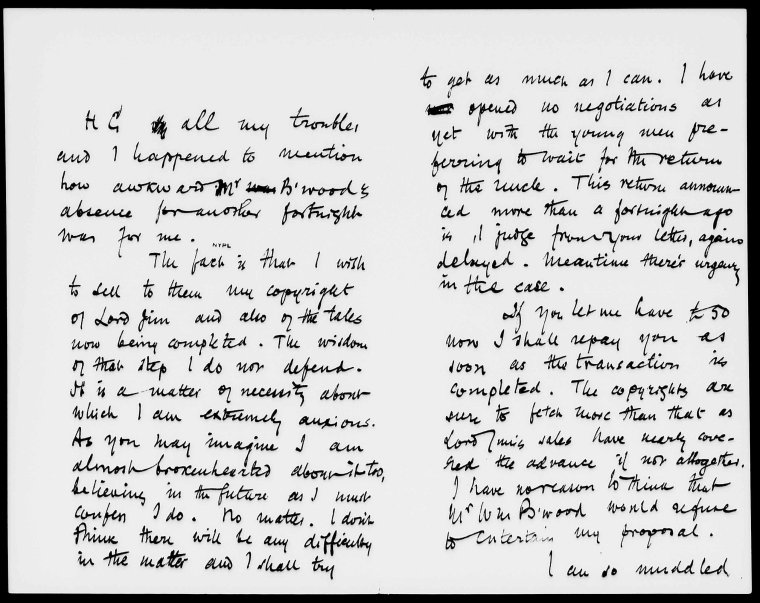 H G all my troubles
and I happened to mention
how awkward Mr B'wood's
absence for another fortnight
was for me.
NYPL
The fact is that I wish
to sell to them my copyright
of Lord Jim and also of the tales
now being completed. The wisdom
of that step I do not defend.
It is a matter of necessity about
which I am extremely anxious.
As you may imagine I am
almost brokenhearted about it too,
believing in the future as I must
confess I do. No matter. I don't
think there will be any difficulty
in the matter and I shall try
to get as much as I can. I have
opened no negotiations as
yet with the young men pre-
ferring to wait for the return
of the uncle. This return announ-
ced more than a fortnight ago
is, I judge from your letter, again
delayed. Meantime there's urgency
in the case.
If you let me have £50
now I shall repay you as
soon as the transaction is
completed. The copyrights are
sure to fetch more than that as
Lord Jim's sales have nearly cove-
red the advance if not altogether.
I have no reason to think that
Mr Wm B'wood would refuse
to entertain my proposal.
I am so muddled